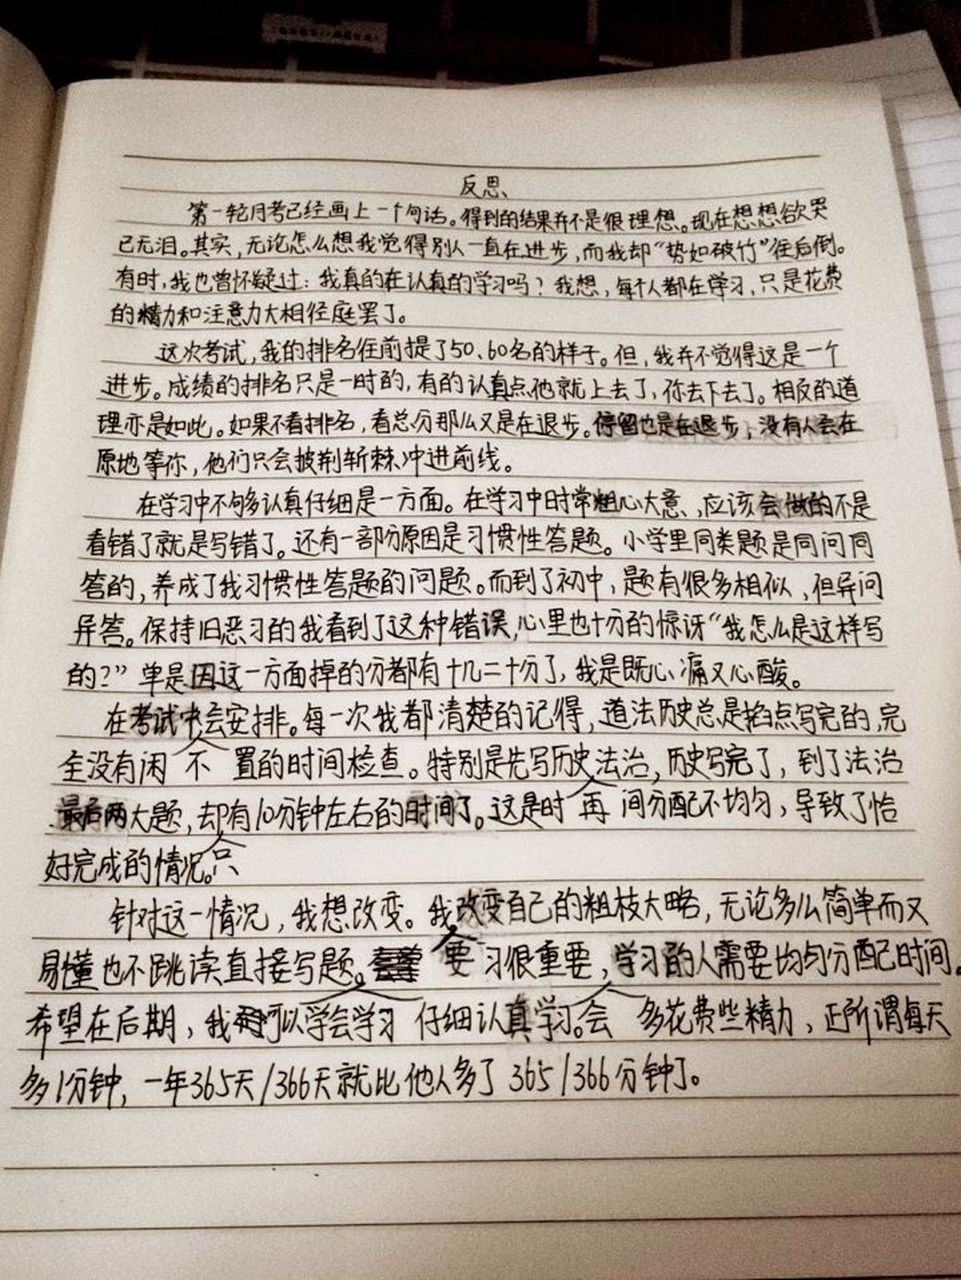 反思
第一轮月考已经画上一个句话。得到的结果并不是很理想。现在想想欲哭
已无泪。其实,无论怎么想我觉得别人一直在进步,而我却“势如破竹”往后倒。
有时,我也曾怀疑过:我真的在认真的学习吗?我想,每个人都在学习,只是花费
的精力和注意力大相径庭罢了。
这次考试,我的排名往前提了50、60名的样子。但,我并不觉得这是一个
进步。成绩的排名只是一时的,有的认真点他就上去了,你去下去了。相反的道
理亦是如此。如果不看排名,看总分那么又是在退步。停留也是在退步,没有人会在
原地等你,他们只会披荆斩棘冲进前线。
在学习中不够认真仔细是一方面。在学习中时常粗心大意、应该会做的不是
看错了就是写错了。还有一部分原因是习惯性答题。小学里同类题是同问同
答的,养成了我习惯性答题的问题。而到了初中,题有很多相似,但异问
异答。保持旧恶习的我看到了这种错误,心里也十分的惊讶“我怎么是这样写
的?”单是因这一方面掉的分都有十几二十分了,我是既心痛又心酸。
在考试中会安排。每一次我都清楚的记得,道法历史总是掐点写完的,完
全没有闲不置的时间检查。特别是先写历史法治,历史写完了,到了法治
最后两大题,却有10分钟左右的时间了。这是时再间分配不均匀,导致了恰
好完成的情况。只
针对这一情况,我想改变。我改变自己的粗枝大略,无论多么简单而又
易懂也不跳读直接写题。要习很重要,学习的人需要均匀分配时间。
希望在后期,我可以学会学习仔细认真学习。会多花费些精力,正所谓每天
多1分钟,一年365天/366天就比他人多了365/366分钟了。